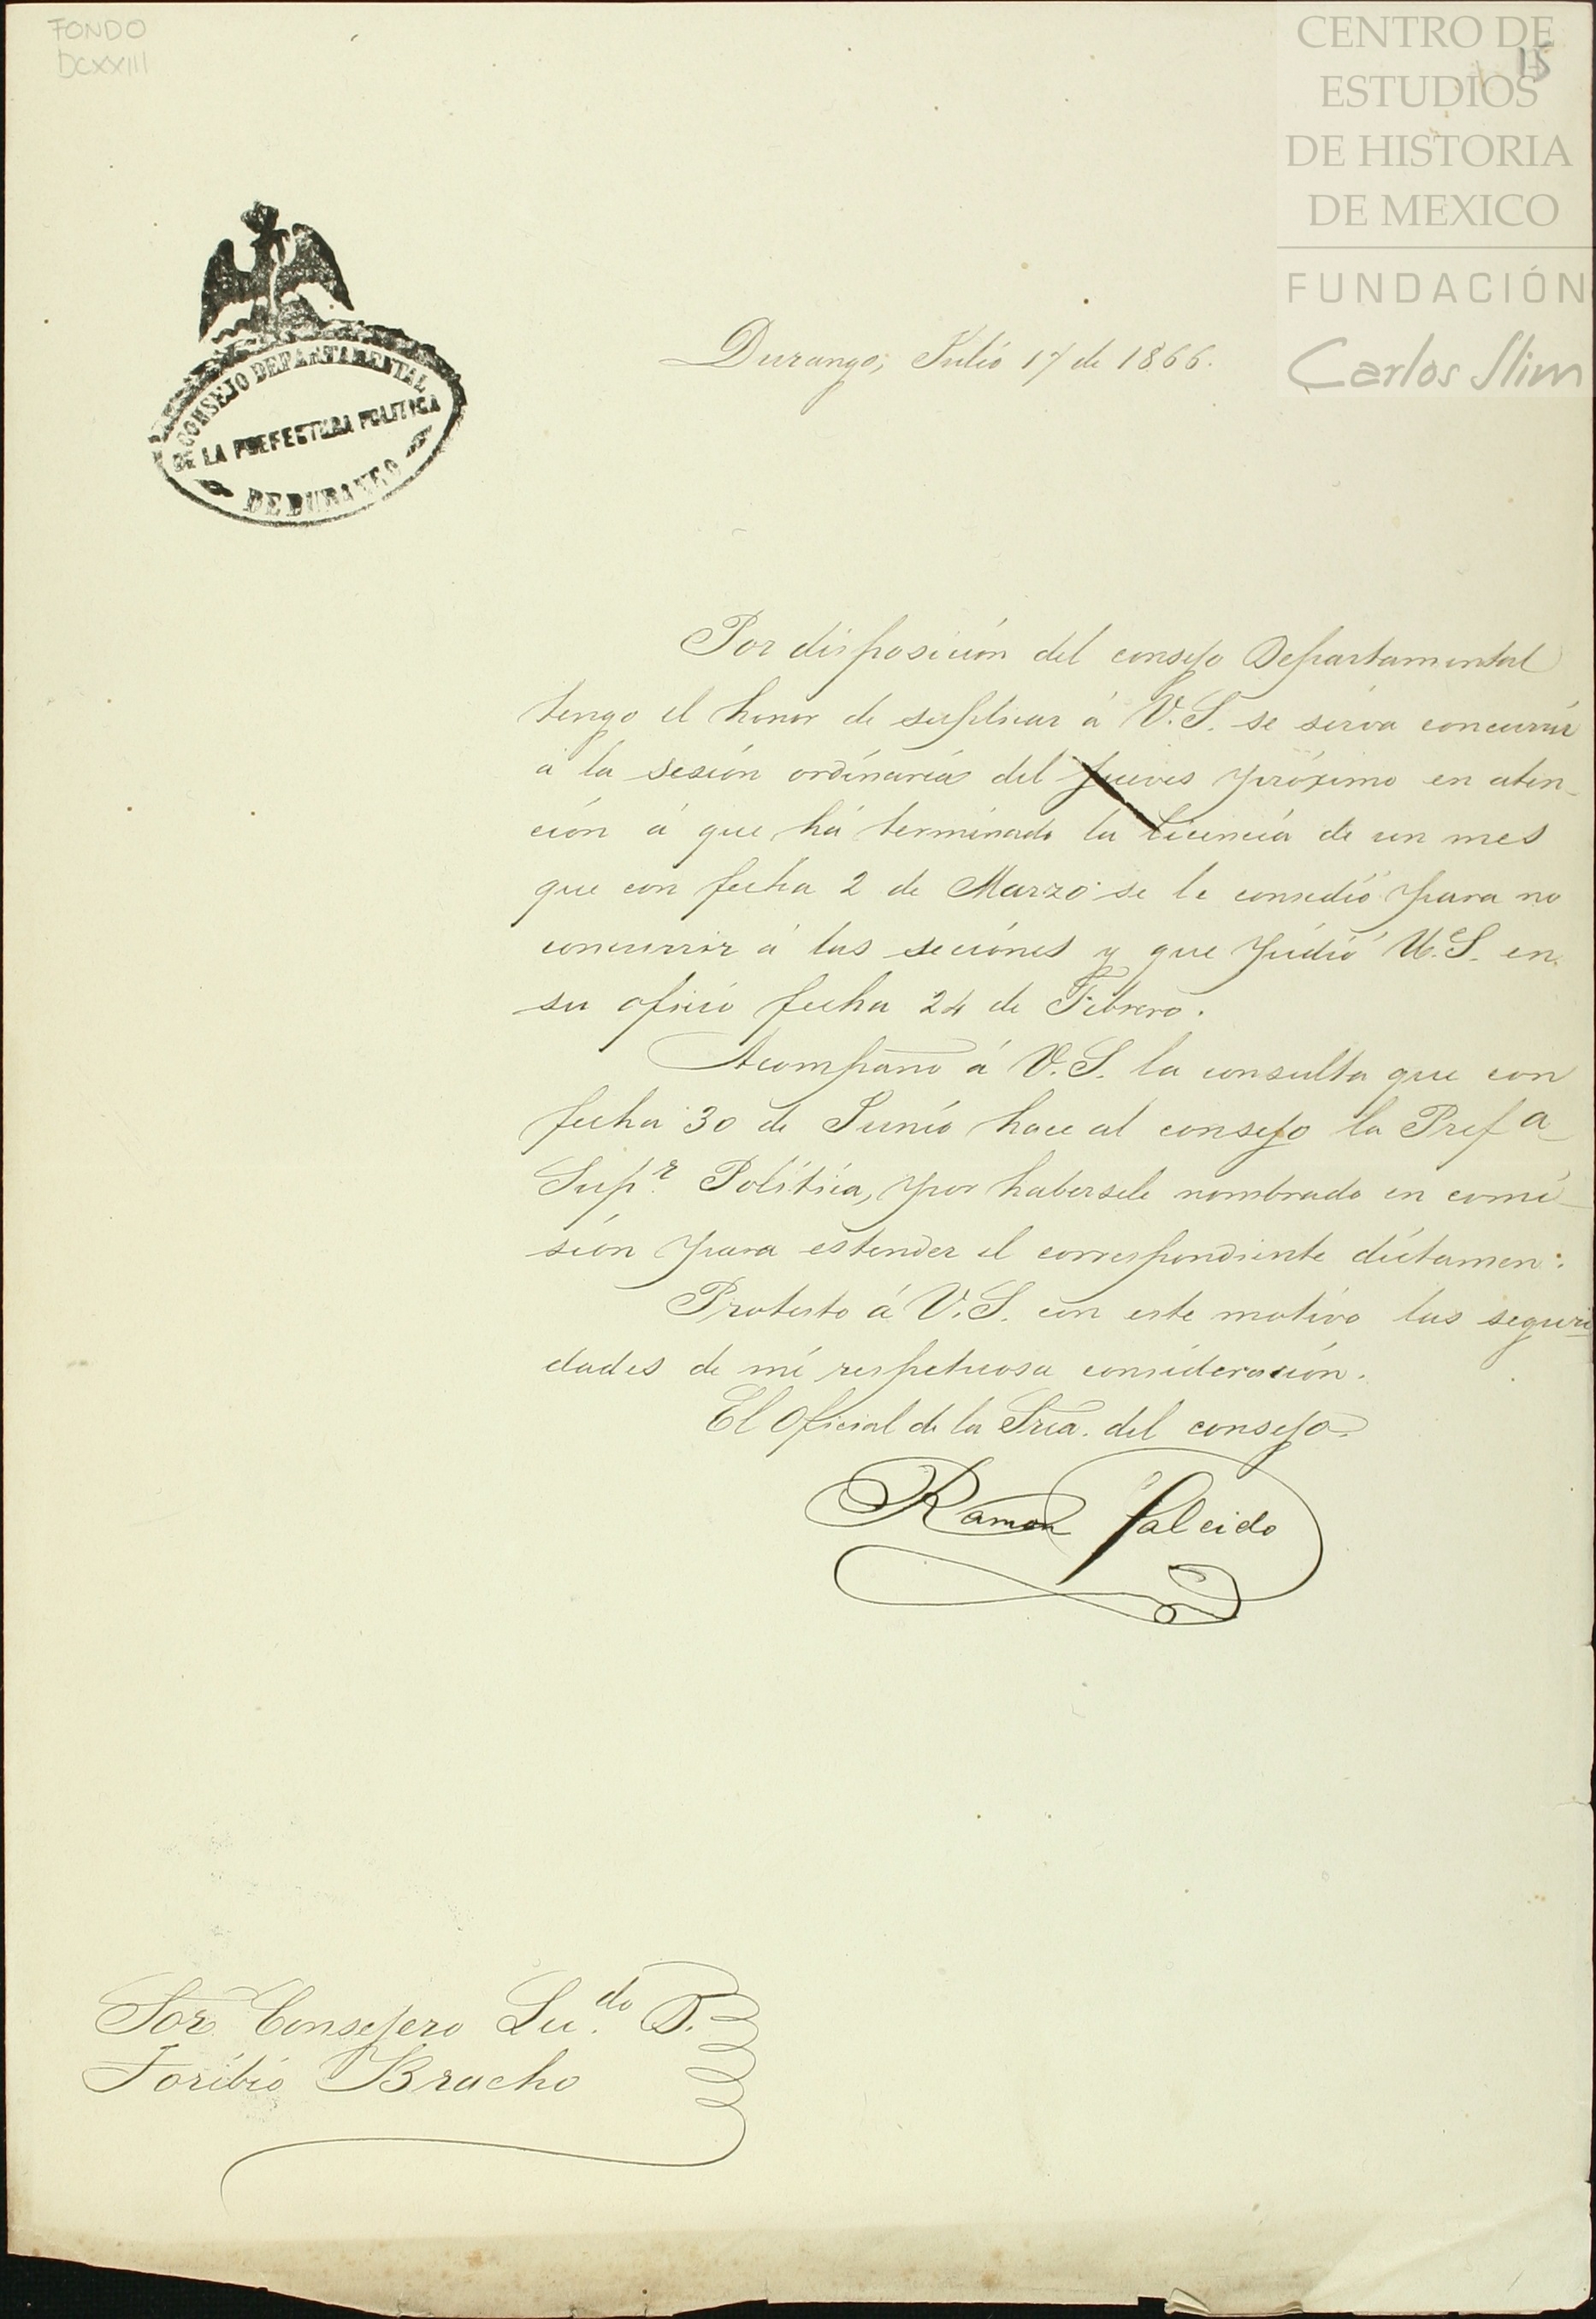 FONDO
DCXXIII
15
CENTRO DE
ESTUDIOS
DE HISTORIA
DE MEXICO
FUNDACIÓN
Carlos Slim
CONSEJO DEPARTAMENTAL
DE LA PREFECTURA POLITICA
DE DURANGO
Durango, Julio 17 de 1866.
Por disposición del consejo Departamental
tengo el honor de suplicar á V.S. se sirva concurrir
á la sesión ordinaria del Jueves próximo en aten-
ción á que há terminado la licencia de un mes
que con fecha 2 de Marzo se le consedió para no
concurrir á las seciónes y que pidió U.S. en
su oficio fecha 24 de Febrero.
Acompaño á V.S. la consulta que con
fecha 30 de Junio hace al consejo la Prefa
Supr. Política, por habersele nombrado en comi-
sión para estender el correspondiente dictamen.
Protesto á V.S. con este motivo las seguri
dades de mi respetuosa consideración.
El Oficial de la Sria. del consejo.
Ramon Salcido
Sor. Consejero Lic.do D.
Toribio Bracho